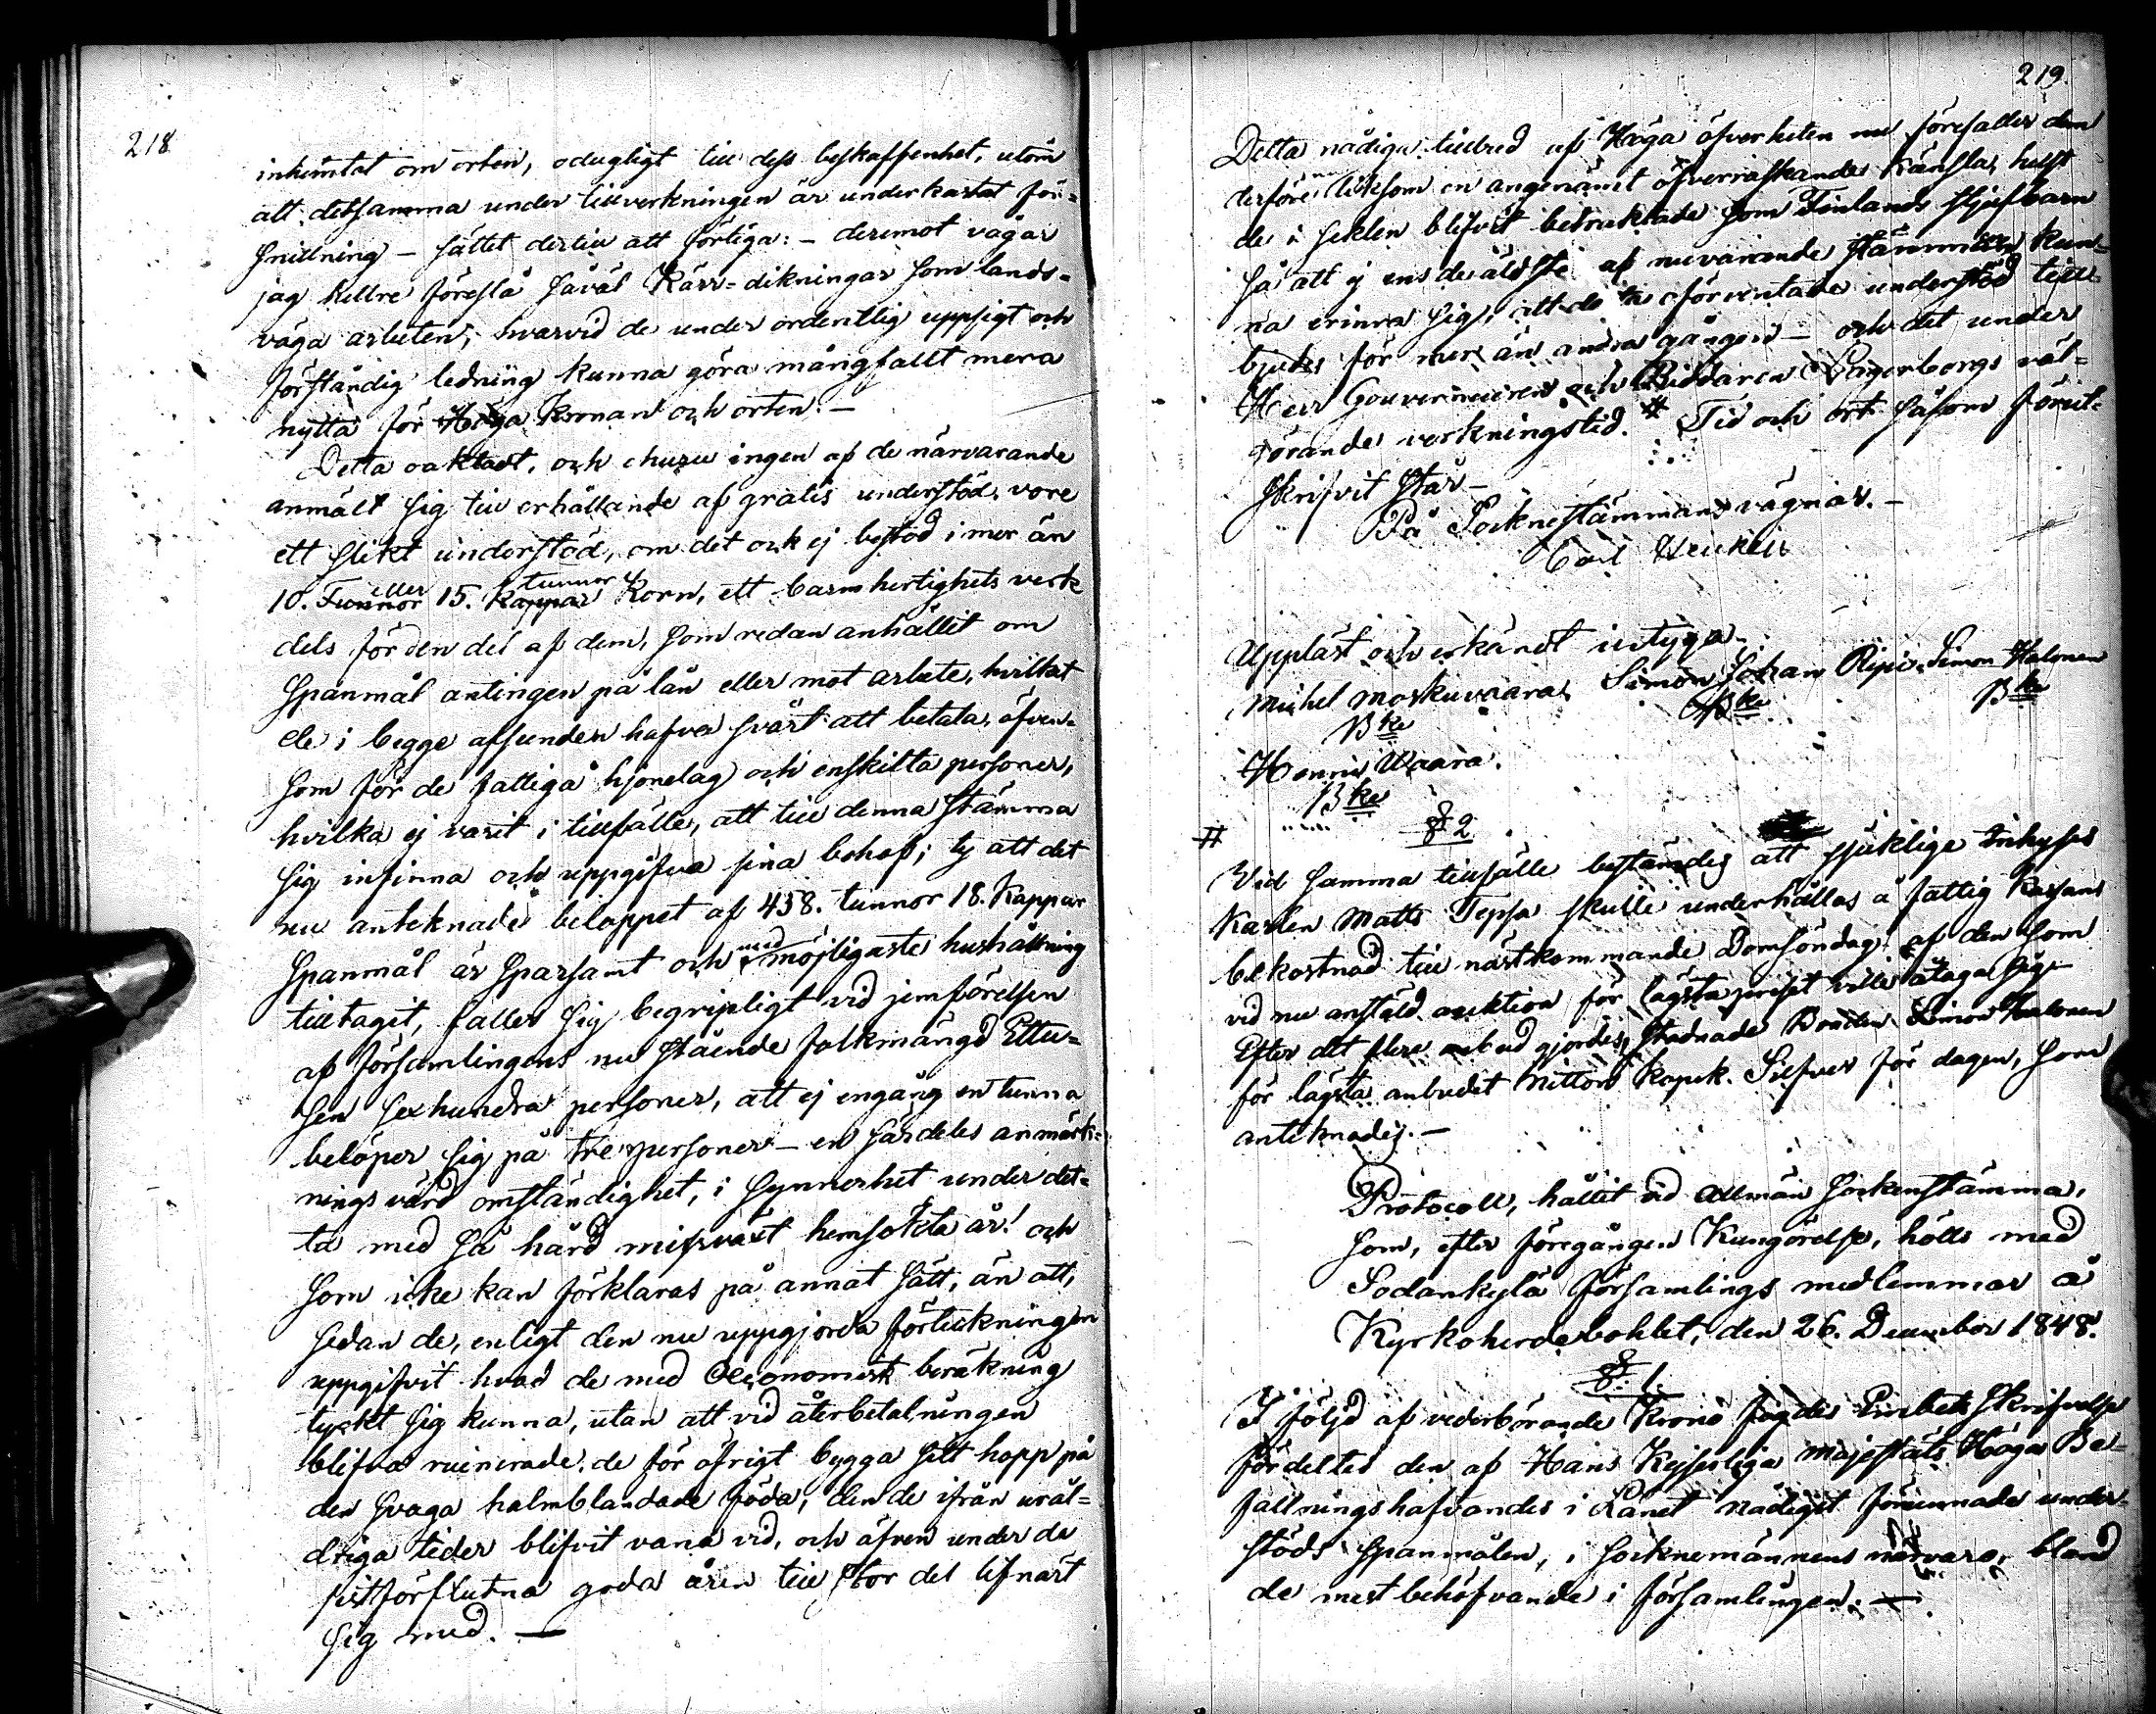 218
inhemtat om orten, odugligt till dess beskaffenhet, utom
att detsamma under tillverkningen är underkastat för-
snillning - sättet dertill att förtiga: - deremot vågar
jag hellre föreslå såväl Kärr-dikningar som lands-
väga arbeten, hvarvid de under ordentlig uppsigt och
förståndig ledning kunna göra mångfallt mera
nytta för Höga Kronan och orten. -
Detta oaktadt, och ehuru ingen af de närvarande
anmält sig till erhållande af gratis understöd, vore
ett slikt understöd, om det ock ej bestod i mer än
10. Tunnor eller 15. Kappar tunnor Korn, ett barmhertighets verk
dels för den del af dem, som redan anhållit om
Spanmål antingen på lån eller mot arbete, hvilket
de i begge afseenden hafva svårt att betala, äfven-
som för de fattiga hjonelag och enskilta personer,
hvilka ej varit i tillfälle, att till denna stämma
sig infinna och uppgifva sina behof; ty att det
nu anteknade beloppet af 458. tunnor 18. Kappar
Spanmål är sparsamt och med möjligaste hushållning
tilltaget, faller sig begripligt vid jemförelsen
af församlingens nu stående folkmängd Ettu-
sen sexhundra personer, att ej engång en tunna
belöper sig på tre personer - en särdeles anmärk-
nings värd omständighet, i synnerhet under det-
ta med så hård missväxt hemsökta år! och
som icke kan förklaras på annat sätt, än att,
sedan de, enligt den nu uppgjorda förteckningen
uppgifvit hvad de med Oeconomisk beräkning
tyckt sig kunna, utan att vid återbetalningen
blifva ruinerade, de för öfrigt bygga sitt hopp på
den svaga halmblandade föda, den de ifrån uräl-
driga tider blifvit vana vid, och äfven under de
sistförflutna goda åren till stor del lifnärt
sig med. -
219.
Detta nådiga tillbud af Höga öfverheten nu förefaller dem
derföre liksom en angenämt öfverraskande känsla, helst
de i seklen blifvit betraktade som Finlands stjufbarn
så att ej ens de äldste af nuvarande stämmän kun-
na erinra sig, att de oförväntade understöd till-
bjudes för mer än andra gången - och det under
Herr Gouverneuren och Riddaren Lagerborgs väl-
görande verkningstid. # Tid och ort såsom förut-
skrifvit står -
På Socknestämmans vägnar. -
Carl Heickell
Uppläst och erkändt intyga
Michel Moskuvaara, Simon Johan Ripi, Simon Halonen
Bke Bke Bke
Henric Waara.
Bke
§ 2
# Vid samma tillfälle bestämdes att sjuklige Inhyses
Karlen Matts Tepsa skulle underhållas å fattig Kassans
bekostnad till nästkommande Domsöndag af den som
vid nu anställd auktion för lägsta priset ville åtaga sig
Efter det flere anbud gjordes, stadnade Bonden Simon Halonen
för lägsta anbudet Nitton Kopek. Silfver för dagen, som
anteknades. -
Protocoll, hållit vid Allmän Sockenstämma,
som, efter föregången Kungörelse, hölls med
Sodankylä församlings medlemmar å
Kyrkoherdebohlet, den 26. December 1848.
§ 1
I följd af vederbörande Krono fogdes Embets skrifvelse
fördeltes den af Hans Kejserliga Majestäts Höga Be-
fallningshafvandes i Länet nådigst förunnade under-
stöds Spanmålen, i Socknemännens närvaro, bland
de mest behöfvande i församlingen. -